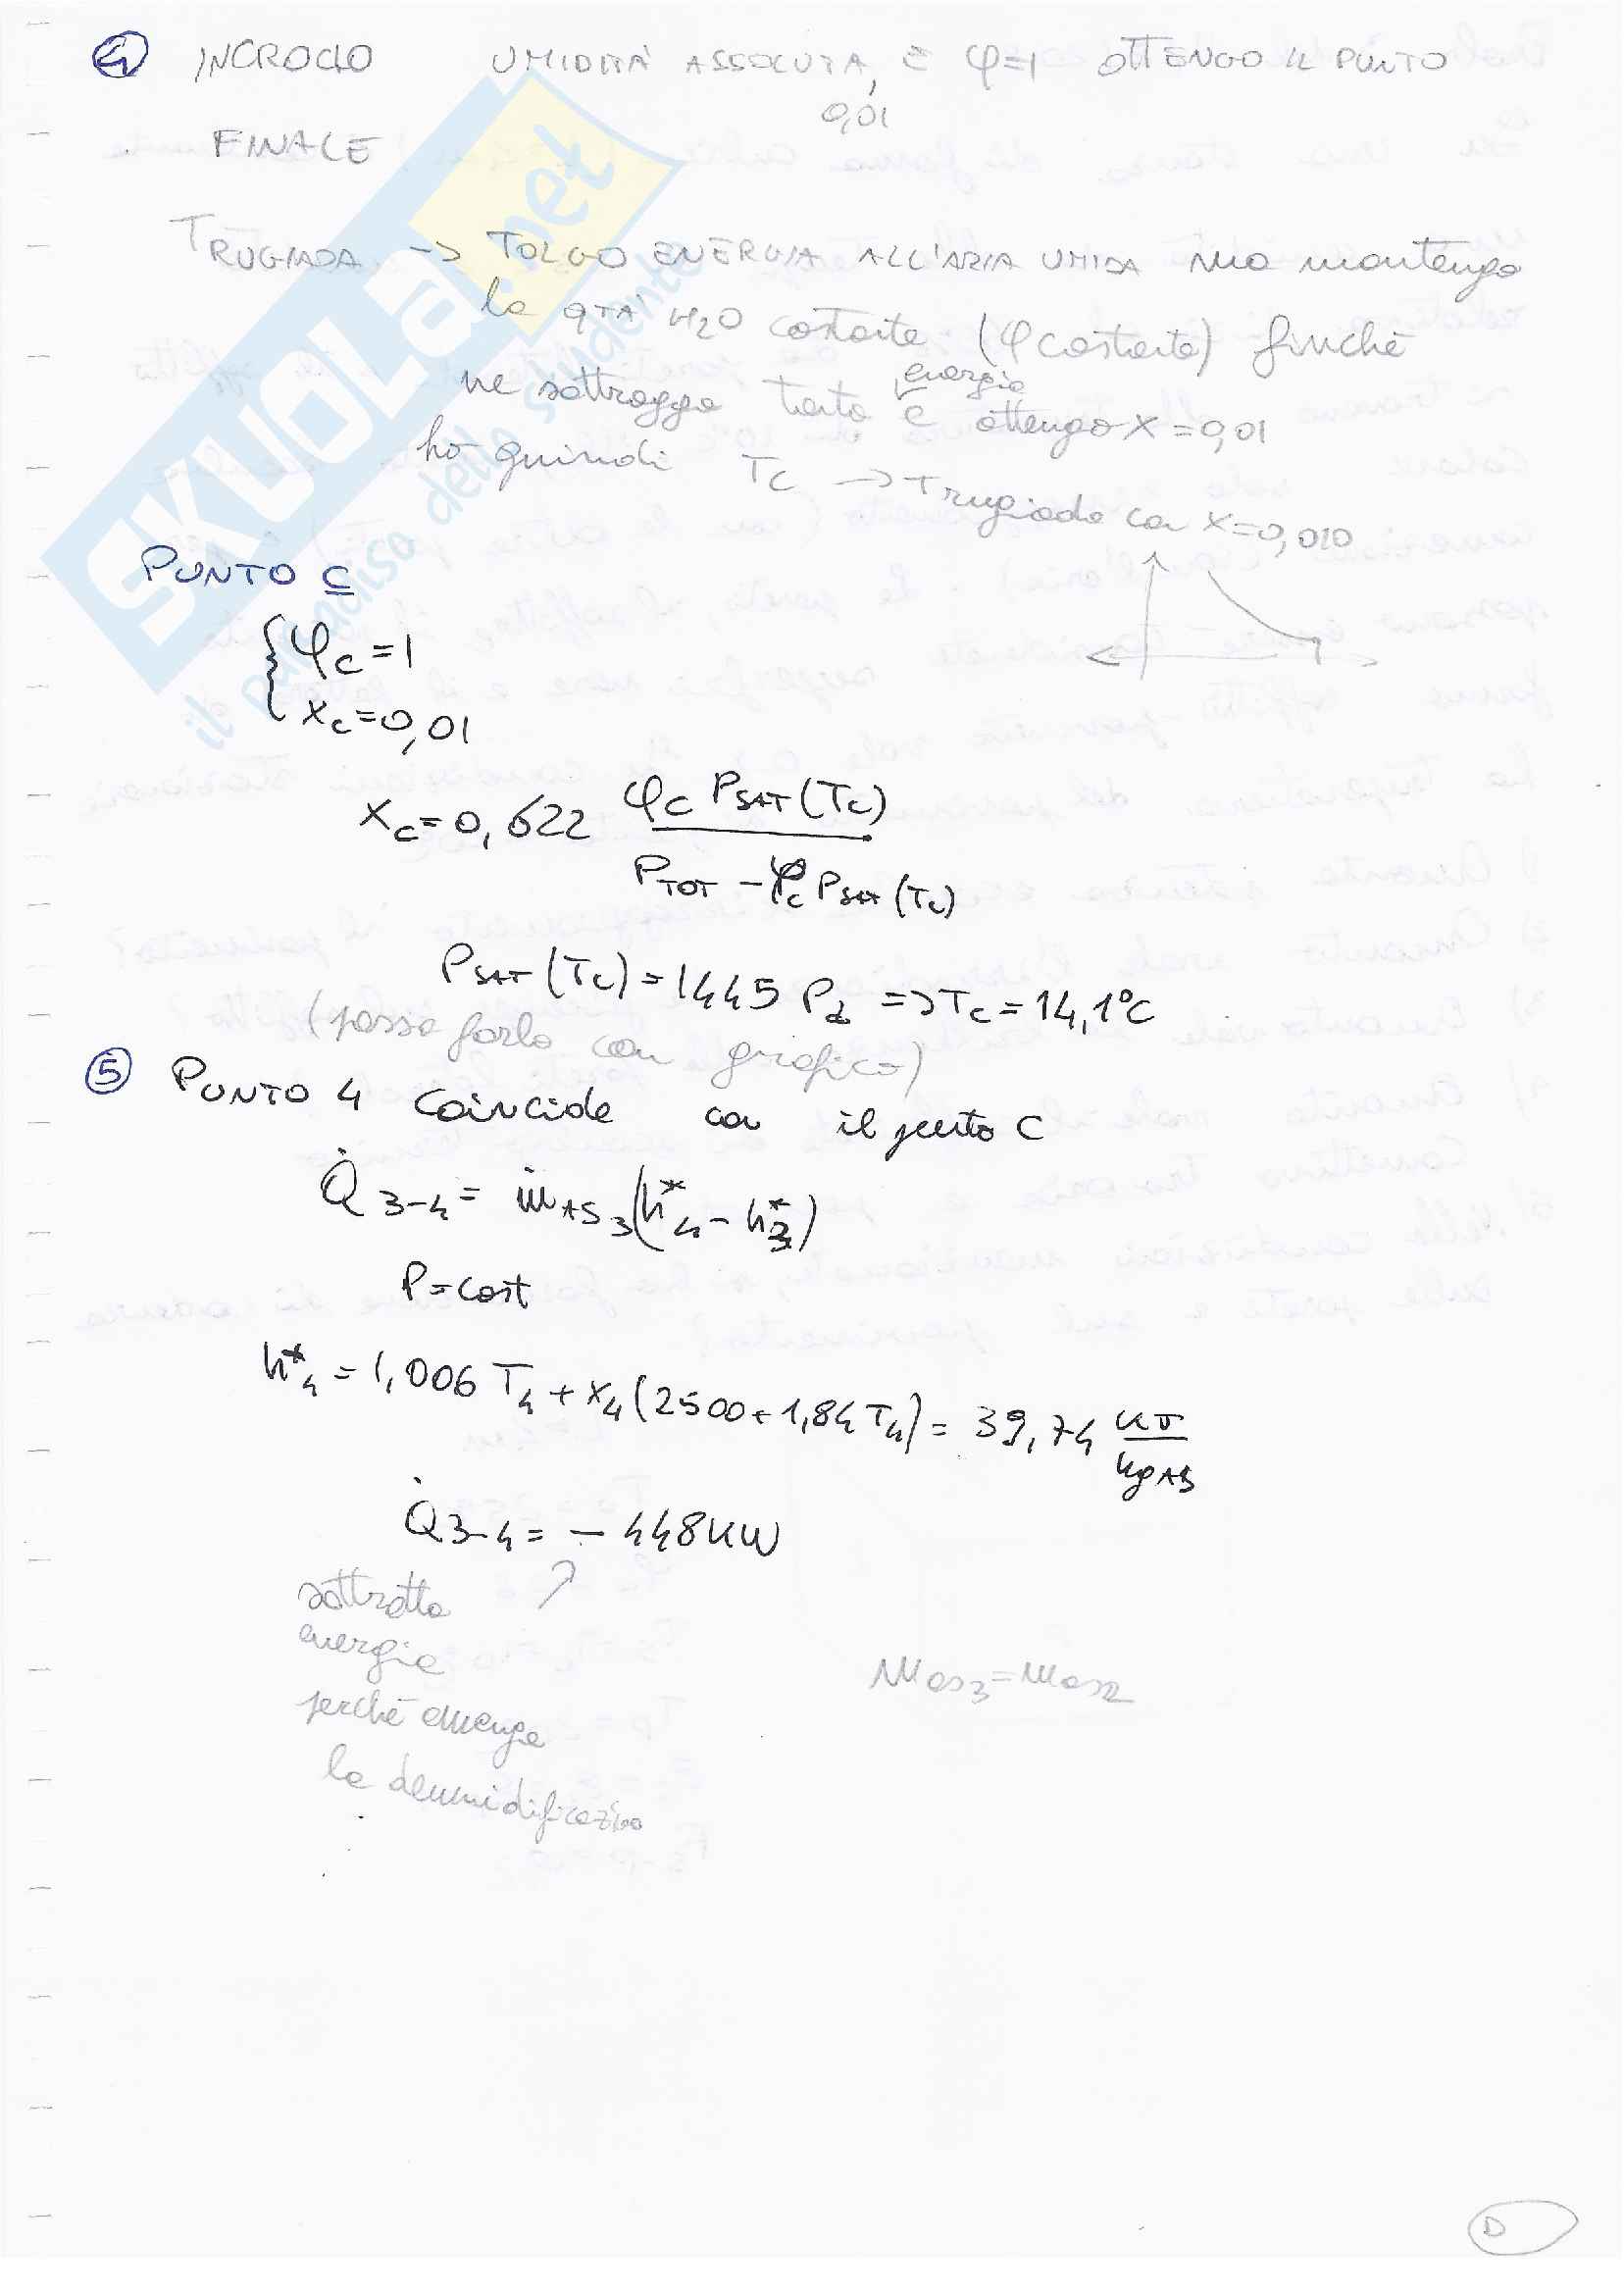 ④ INCROCIO UMIDITÀ ASSOLUTA, E φ=1 OTTENGO IL PUNTO
0,01
FINALE
TRUGIADA -> TOLGO ENERGIA ALL'ARIA UMIDA ma mantengo
la qtà H2O costante (φ costante) finché
energia
ne sottraggo tanta e ottengo x=0,01
ho quindi Tc -> Trugiada con x=0,010
PUNTO C
{φc=1
xc=0,01
xc=0,622 φc PSAT(Tc)
PTOT - φc Psat(Tc)
PSAT(Tc)=1445 Pa => Tc=14,1°C
(posso farlo con grafico)
⑤ PUNTO 4 coincide con il punto C
Q̇3-4 = ṁAS3(h*4 - h*3)
P=cost
h*4 = 1,006 T4 + x4(2500+1,84 T4) = 39,74 kJ
kgAS
Q̇3-4 = -448 kW
sottratta
energia
perché avvenga
la deumidificazione
mas3=mas2
D
SKUOLA.net
il paradiso dello studente